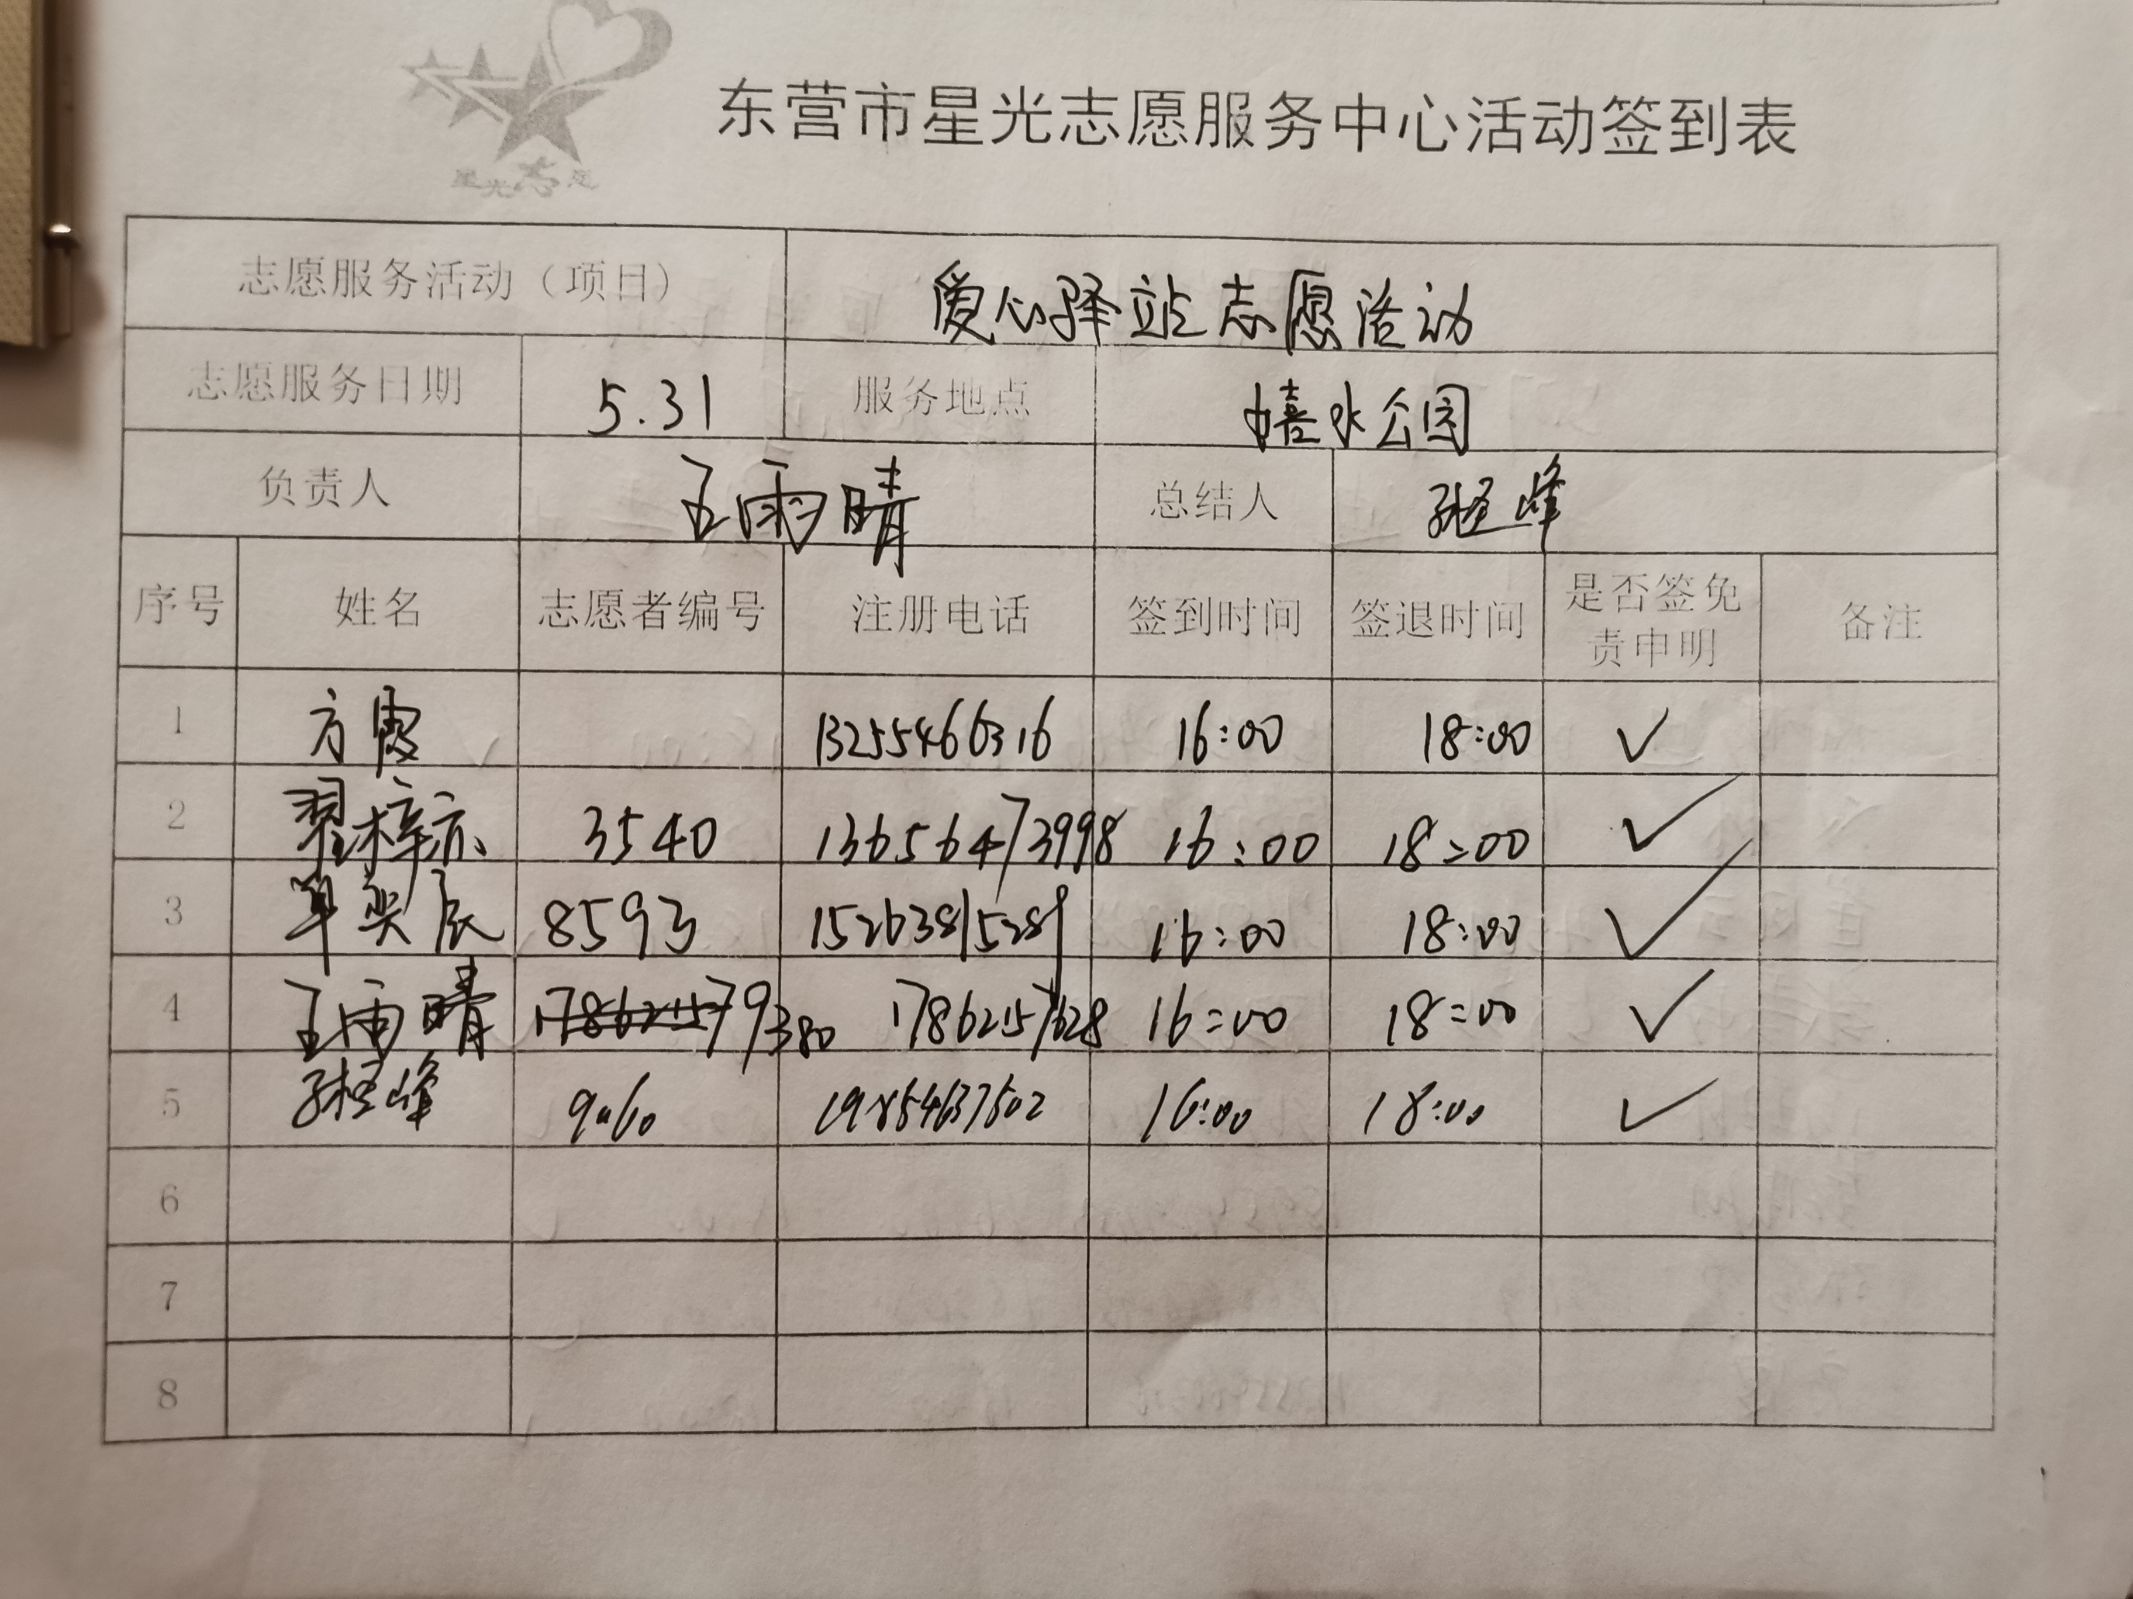 星光志愿
东营市星光志愿服务中心活动签到表
志愿服务活动（项目） 爱心驿站志愿活动
志愿服务日期 5.31 服务地点 嬉水公园
负责人 王雨晴 总结人
序号 姓名 志愿者编号 注册电话 签到时间 签退时间 是否签免责申明 备注
1 方霞 13255466316 16:00 18:00 ✓
2 翟梓亦 3540 13656473998 16:00 18:00 ✓
3 单奕辰 8593 15263815289 16:00 18:00 ✓
4 王雨晴 9380 17862157628 16:00 18:00 ✓
5 19854637502 16:00 18:00 ✓
6
7
8